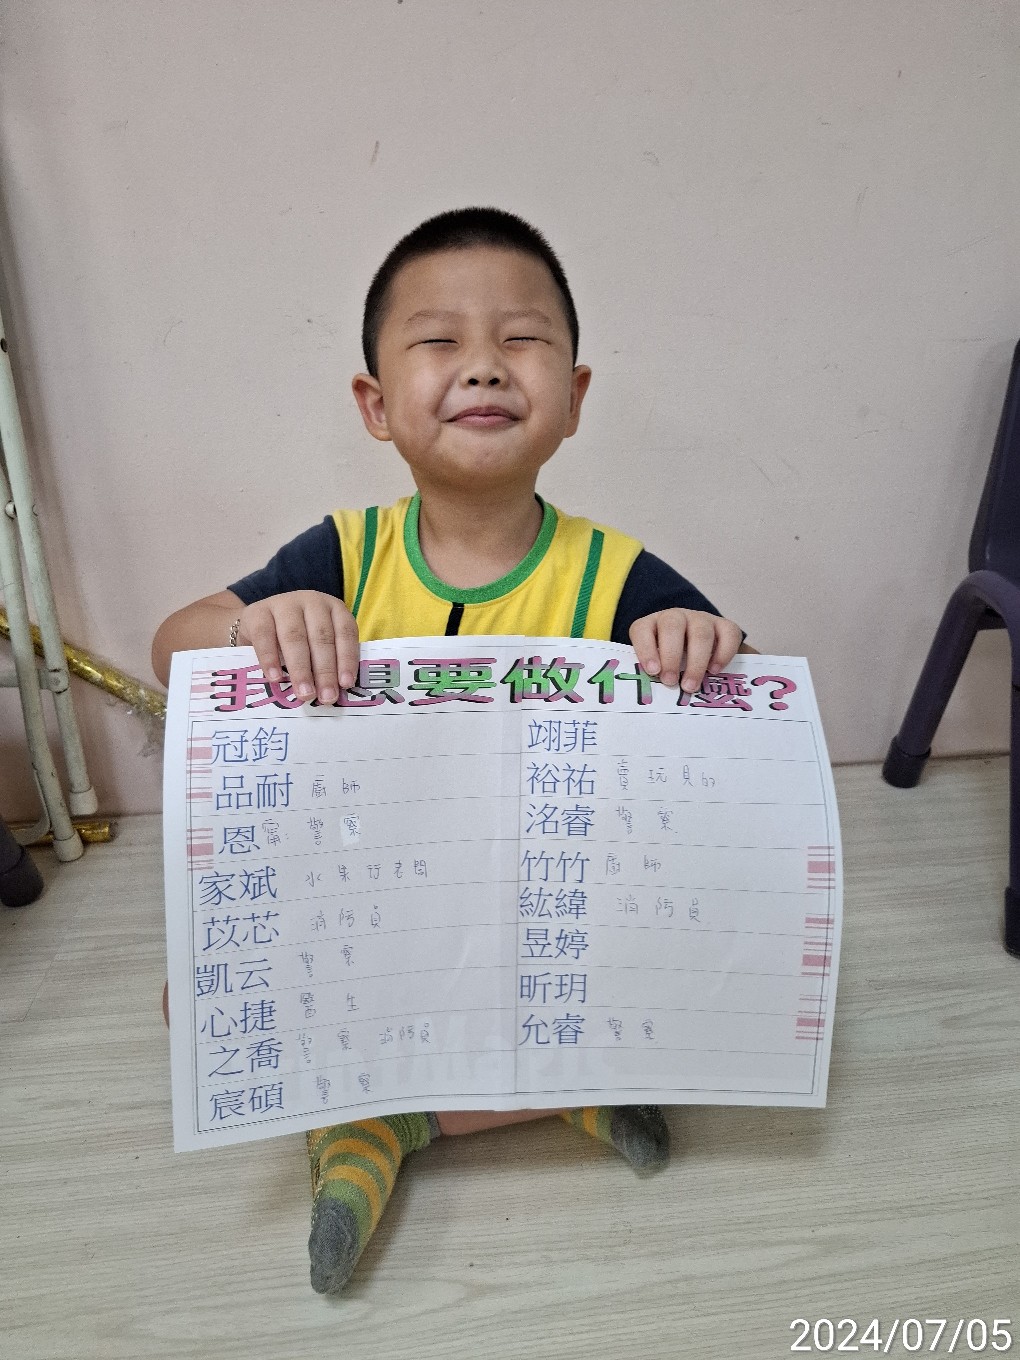 我想要做什麼?
冠鈞
品耐 廚師
恩霈 警察
家斌 水果行老闆
苡芯 消防員
凱云 警察
心捷 醫生
之喬 警察 消防員
宸碩 警察
翊菲
裕祐 賣玩具的
洺睿 警察
竹竹 廚師
紘緯 消防員
昱婷
昕玥
允睿 警察
2024/07/05